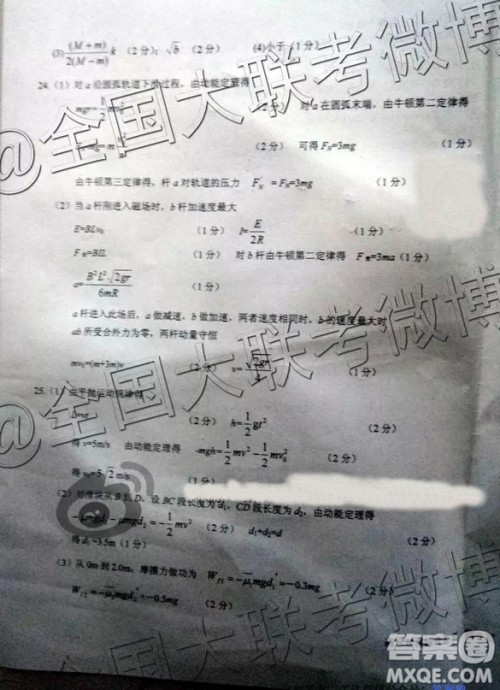 (3) (M+m)/2(M-m) k (2分); √b (2分) (4)小于 (1分)
24.(1) 对a沿圆弧轨道下滑过程,由动能定理得
mgr=1/2 m (2分) 对a在圆弧末端,由牛顿第二定律得
(2分) 可得 F_N=3mg (1分)
由牛顿第三定律得,杆a对轨道的压力 F'_N =F_N=3mg (1分)
(2) 当a杆刚进入磁场时,b杆加速度最大
E=BLv₀ (1分) I=E/2R (1分)
F安=BIL (1分) 对b杆由牛顿第二定律得 F安=3ma (1分)
a=B²L²√2gr/6mR (1分)
a杆进入此场后,a做减速,b做加速,两者速度相同时,b的速度最大对
ab所受合外力为零,两杆动量守恒
mv₀=(m+3m)v (2分) v= (1分)
25.(1) 由平抛运动规律得
(2分) h=1/2 gt² (2分)
得 v=5m/s 由动能定理得 -mgh=1/2 mv²-1/2 mv₀² (2分)
得 v₀=5√2 m/s (1分)
(2) 对滑块从B到D,设BC段长度为d₁,CD段长度为d₂,由动能定理得
-μmgd₂=-1/2 mv² (2分) d₁+d₂=d (2分)
得 d₁=3.5m (1分)
(3) 从0m到2.0m,摩擦力做功为 W_f1=-μ₁mgd₁'=-0.3mg (2分)
W_f2=-μ₂mgd₂'=-0.5mg (2分)
@全国大联考微博
@全国大联考微博
@全国大联考微博
答案圈
MXQE.COM